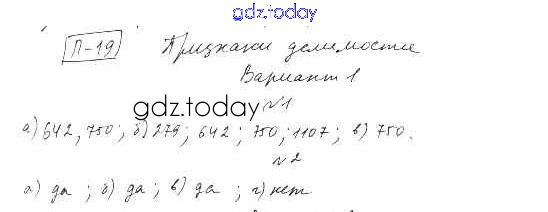 gdz.today
П-19 Признаки делимости
Вариант 1
gdz.today
№1
а) 642, 750; б) 279; 642; 750; 1107; в) 750.
№2
а) да; б) да; в) да; г) нет